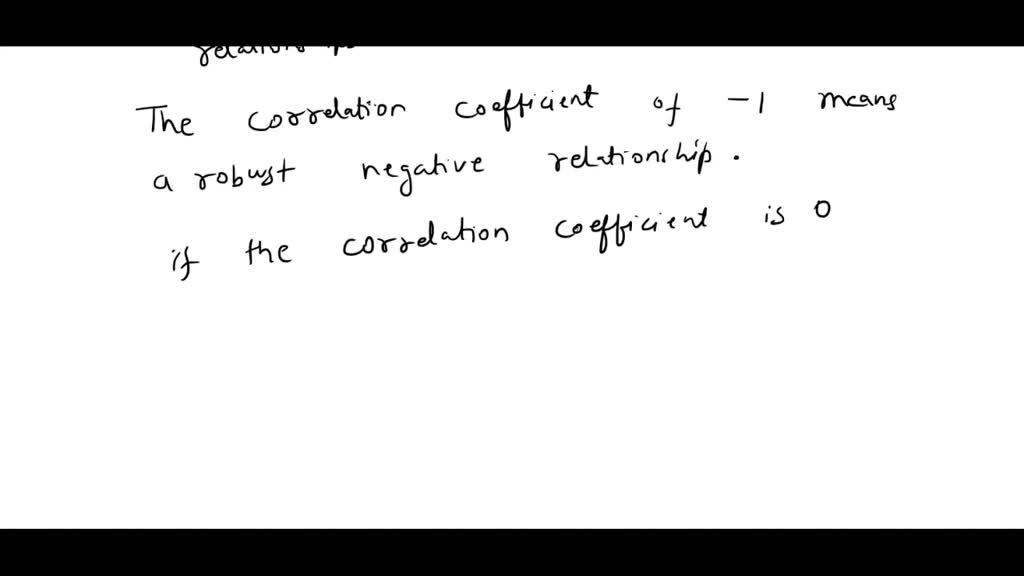 The correlation coefficient of -1 means
a robust negative relationship.
if the correlation coefficient is 0